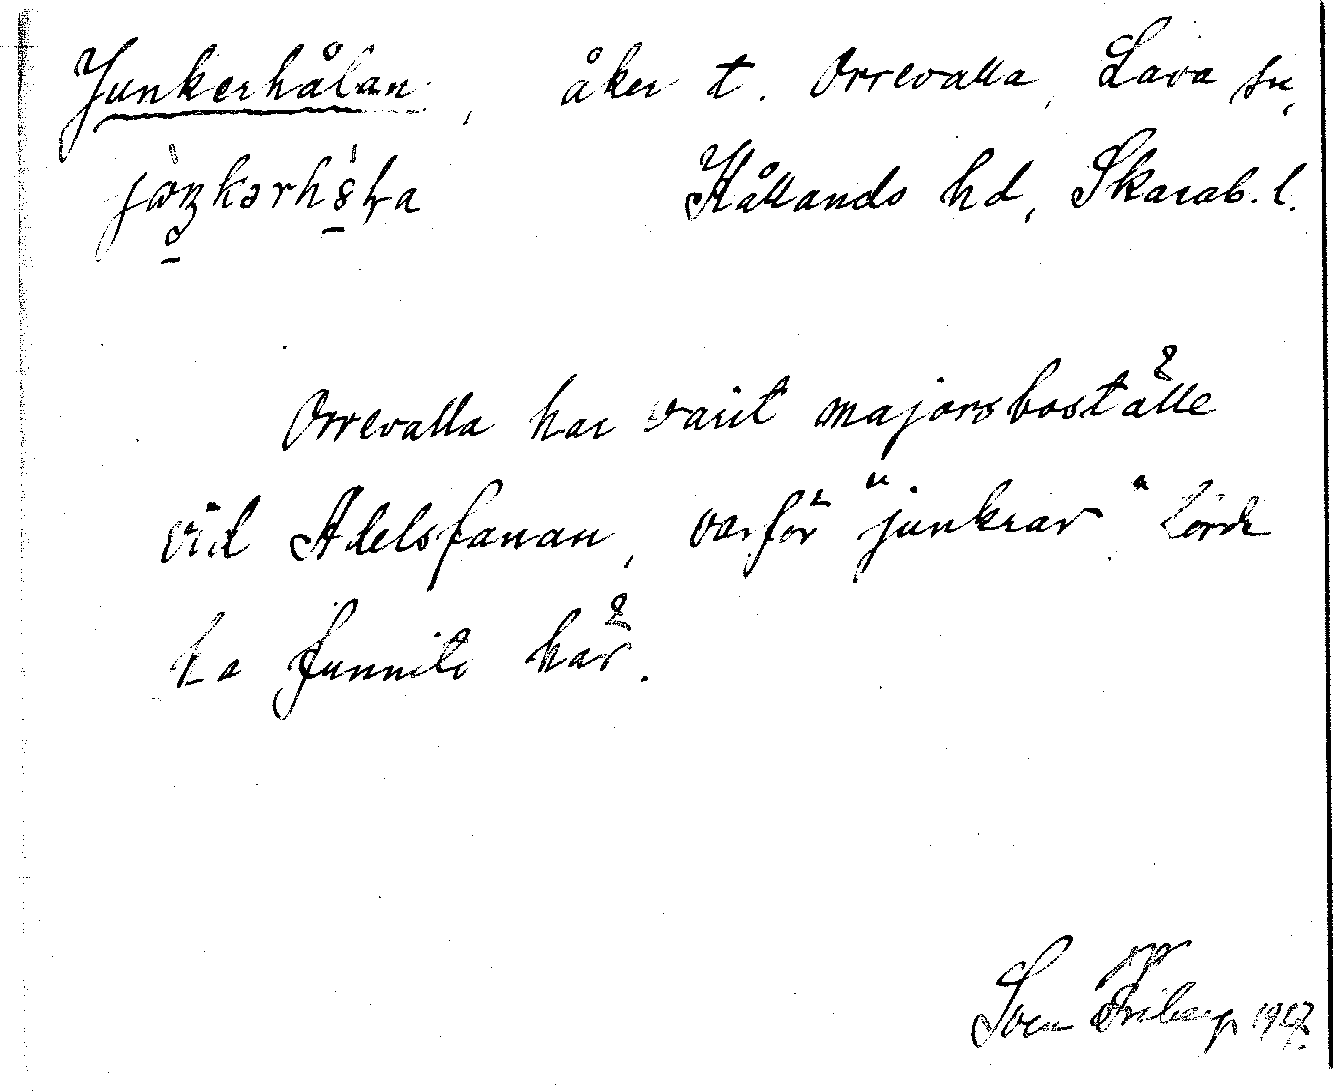 Junkerhålan, åker t. Orrevalla, Lava sn,
Kållands hd, Skarab. l.
Orrevalla har varit majorsboställe
vid Adelsfanan, varför "junkrar" torde
ha funnits här.
Sven Friberg